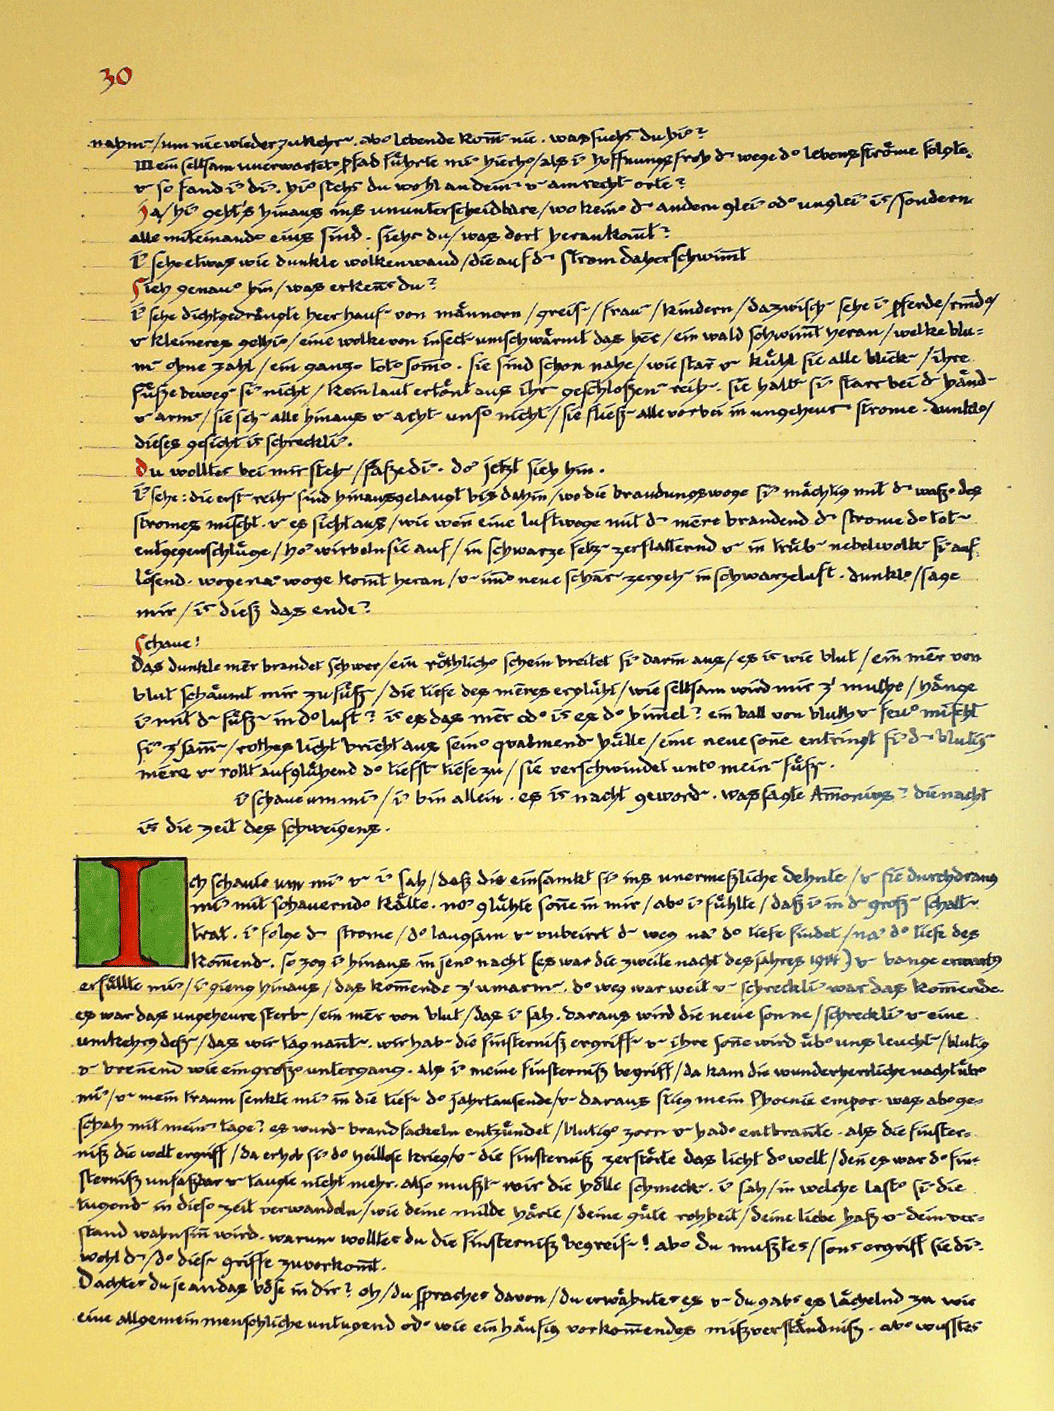 30
nahm / um nie wieder zu kehr . abo lebende kom̄ nie . was suchs du hi° ?
Mein seltsam unerwartet pfad führte mi hierho / als i hoffnungsfroh d wege do lebensströme folgte.
v so fand i di . hi° stehs du wohl an dein v am recht orte ?
Ja / hi geht's hinaus ins ununterscheidbare / wo keino d andern glei odo unglei is / sondern
alle miteinando eins sind . siehs du / was dort herankom̄t ?
i sehe etwas wie dunkle wolkenwand / die auf d strom daherschwim̄t
Sieh genau hin / was erken̄s du ?
i sehe dichtgedrängte heerhauf von männern / greis / frau / kindern / dazwisch sehe i pferde / rindo /
v kleineres gethio / eine wolke von insect umschwärmt das heer / ein wald schwim̄t heran / welke blu=
m ohne zahl / ein ganzo toto som̄o . sie sind schon nahe / wie star v kühl sie alle blick / ihre
füße beweg si nicht / kein laut ertönt aus ihr geschloßen reih . sie halt si starr bei d händ
v arm / sie seh alle hinaus v acht unso nicht / sie fließ alle vorbei in ungeheur strome . dunklo /
dieses gesicht is schreckli .
du wolltes bei mir steh / faße di . do jetzt sieh hin .
i sehe : die erst reih sind hinausgelangt bis dahin / wo die brandungswoge si mächtig mit d waßo des
stromes mischt . v es sieht aus / wie wen̄ eine luftwoge mit d mere brandend d strome do tot
entgegenschlüge / ho wirbeln sie auf / in schwarze fetz zerflatternd v in trüb nebelwolk si auf
lösend . woge na woge kom̄t heran / v im̄o neue schar zergeh in schwarze luft . dunklo / sage
mir / is dieß das ende ?
Schaue !
Das dunkle mer brandet schwer / ein röthlicho schein breitet si darin aus / es is wie blut / ein mer von
blut schäumt mir zu füß / die tiefe des meres erglüht / wie seltsam wird mir z' muthe / hänge
i mit d füß in do luft ? is es das mer odo is es do him̄el ? ein ball von blut v feuo mischt
si z'sam̄ / rothes licht bricht aus seino qualmend hülle / eine neue son̄e entringt si d blutig
mere v rollt aufglühend do tiefst tiefe zu / sie verschwindet unto mein füß .
i schaue um mi / i bin allein . es is nacht geword . was sagte Am̄onius ? die nacht
is die zeit des schweigens .
Ich schaute um mi v i sah / daß die einsamkt si ins unermeßliche dehnte / v sie durchdrang
mi mit schauerndo kälte . no glühte son̄e in mir / abo i fühlte / daß i in d groß schatt
trat . i folge d strome / do langsam v unbeirrt d weg na do tiefe findet / na do tiefe des
kom̄end . so zog i hinaus in jeno nacht (es war die zweite nacht des jahres 1914) v bange erwartg
erfüllte mi / i gieng hinaus / das kom̄ende z' umarm . do weg war weit v schreckli war das kom̄ende .
es war das ungeheure sterb / ein mer von blut / das i sah . daraus wird die neue son̄e / schreckli v eine
umkehrg deß / das wir tag nan̄t . wir hab die finsterniß ergriff v ihre son̄e wird übo uns leucht / blutig
v bren̄end wie ein großo untergang . als i meine finsterniß begriff / da kam die wunderherrliche nacht übo
mi / v mein traum senkte mi in die tief do jahrtausende / v daraus stieg mein Phoenix empor . was abo ge=
schah mit mein tage ? es wurd brandfackeln entzündet / blutigo zorn v hado entbran̄te . als die finster=
niß die welt ergriff / da erhob si do heillose krieg / v die finsterniß zerstörte das licht do welt / den̄ es war do fin=
sterniß unfaßbar v taugte nicht mehr . also mußt wir die hölle schmeck . i sah / in welche lasto si die
tugend in dieso zeit verwandeln / wie deine milde härte / deine güte rohheit / deine liebe haß v dein ver=
stand wahnsin̄ wird . warum wolltes du die finsterniß begreif ! abo du mußtes / sons ergriff sie di .
wohl d / do dies griffe zuvorkom̄t .
Dachtes du je an das böse in dir ? oh / du spraches davon / du erwähntes es v du gabs es lächelnd zu wie
eine allgemein menschliche untugend odo wie ein häufig vorkom̄endes mißverständniß . abo wusstes